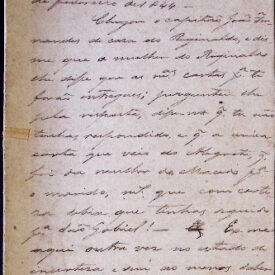 de fevereiro de 1844 —
Chegou o capitão João Fer
nandes de casa do Reginaldo, e dis
me que a mulher do Reginaldo
lhe disse que as m.ᵃˢ cartas p.ᵃ ti
forão entregues; perguntei lhe
pela resposta, disse me q' tu não
tinhas respondido, e q' a unica
carta que veio do Alegrete, q'
foi da mulher do Macedo p.ᵃ
o marido, n'ella que com certe
za dizia que tinhas seguido
p.ᵃ São Gabriel! — Eis me
aqui outra vez no estado de
incerteza e sem ao menos saber